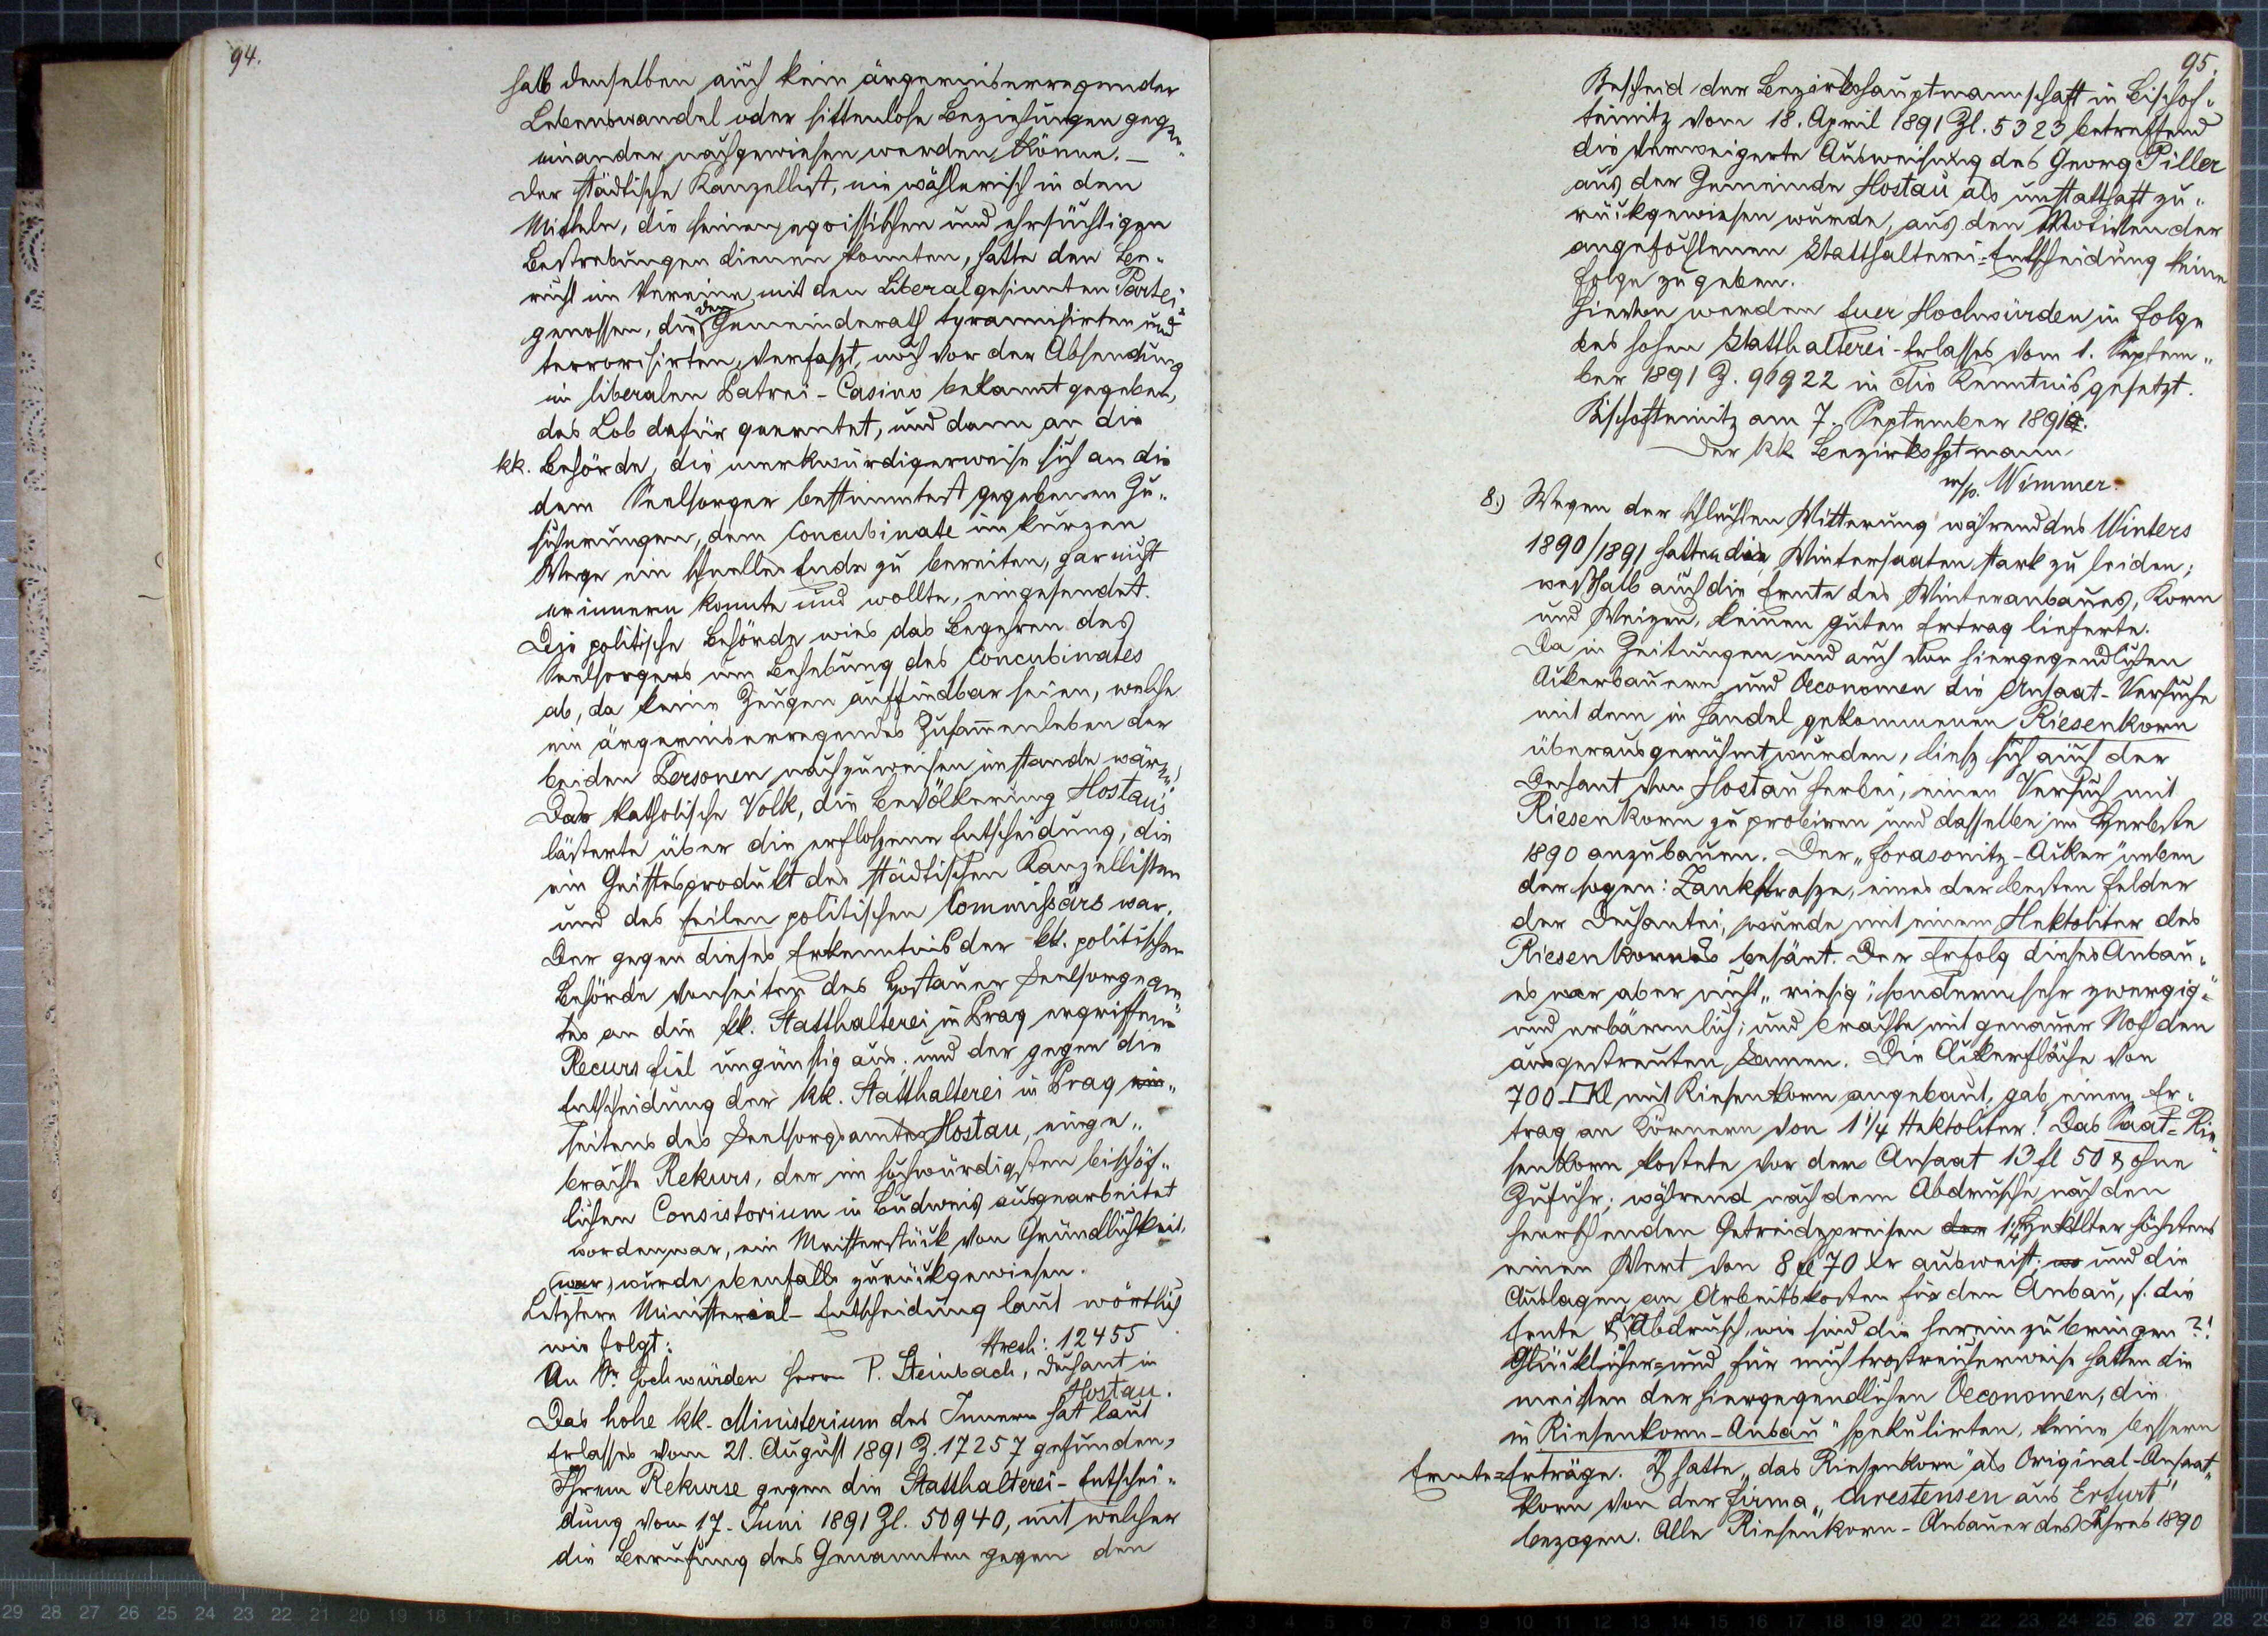 94.
halb denselben auch kein ärgerniserregender
Lebenswandel oder sittenlose Beziehungen gegen„
einander nachgewiesen werden könne. –
Der städtische Kanzellist, nie wählerisch in den
Mitteln, die seinen egoistischen und ehrsüchtigen
Bestrebungen dienen konnten, hatte den Be„
richt im Vereine mit den Liberalgesinnten Partei„
genossen, die den Gemeinderath tyrannisirten und
terrorisirten, verfaszt, noch vor der Absendung
im liberalen Patrei-Casino bekannt gegeben,
das Lob dafür geerntet, und dann an die
kk. Behörde, die merkwürdigerweise sich an die
dem Seelsorger bestimmtest gegebenen Zu„
sicherungen, dem Concubinate im kurzen
Wege ein schnelles Ende zu bereiten, gar nicht
erinnern konnte und wollte, eingesendet.
Die politische Behörde wies das Begehren des
Seelsorgers um Behebung des Concubinates
ab, da keine Zeugen auffindbar seien, welche
ein ärgerniserregendes Zusammenleben der
beiden Personen nachzuweisen imstande wären!
Das katholische Volk, die Bevölkerung Hostau's
lästerte über die erfloszene Entscheidung, die
ein Geistesprodukt des städtischen Kanzellisten
und des feilen politischen Commissärs war.
Der gegen dieses Erkenntnis der kk. politischen
Behörde vonseiten des Hostauer Seelsorgeam„
tes an die kk. Statthalterei in Prag ergriffene
Recurs fiel ungünstig aus; und der gegen die
Entscheidung der kk. Statthalterei in Prag ein„
seitens des Seelsorgsamtes Hostau, einge„
brachte Rekurs, der im hochwürdigsten bischöf„
lichen Consistorium in Budweis ausgearbeitet
worden war, ein Meisterstück von Gründlichkeit
(war) wurde ebenfalls zurückgewiesen.
Letztere Ministerial-Entscheidung laut wörtlich
wie folgt:
Nresh: 12455
An Sr Hochwürden Herrn P. Steinbach, Dechant in
Hostau.
Das hohe kk. Ministerium des Innern hat laut
Erlasses vom 21. August 1891 Z. 17257 gefunden,
Ihrem Rekurse gegen die Statthalterei-Entschei„
dung vom 17. Juni 1891 Zl. 50940, mit welcher
die Berufung des Genannten gegen den
95.
Bescheid der Bezirkshauptmannschaft in Bischof„
teinitz vom 18. April 1891 Zl. 5323 betreffend
die verweigerte Ausweisung des Georg Piller
aus der Gemeinde Hostau als unstatthaft zu„
rückgewiesen wurde, aus den Motiven der
angefochtenen Statthalterei-Entscheidung keine
Folge zu geben.
Hievon werden Euer Hochwürden in Folge
des hohen Statthalterei-Erlasses vom 1. Septem„
ber 1891 Z. 96922 in die Kenntnis gesetzt.
Bischofteinitz am 7. September 1891.
Der kk Bezirkshptmann
m/p. Wimmer.
8.) Wegen der schlechten Witterung während des Winters
1890/1891 hatten die Wintersaaten stark zu leiden;
weszhalb auch die Ernte des Winteranbaues, Korn
und Weizen, keinen guten Ertrag lieferte.
Da in Zeitungen und auch von hiergegendlichen
Ackerbauern und Oeconomen die Ansaat-Versuche
mit dem in Handel gekommenen Riesenkorn
überaus gerühmt wurden, liesz sich auch der
Dechant von Hostau herbei, einen Versuch mit
Riesenkorn zu probiren und dasselbe im Herbste
1890 anzubauen. Der „Horasonitz-Acker" neben
der sogen: Zankstrasze, eines der besten Felder
der Dechantei, wurde mit einem Hektoliter des
Riesenkornes besäet. Der Erfolg dieses Anbau„
es war aber nicht „riesig", sondern sehr zwergig"
und erbärmlich; und brachte mit genauer Noth den
ausgestreuten Samen. Die Ackerfläche von
700 □Kl mit Riesenkorn angebaut, gab einen Er„
trag an Körnern von 1 1/4 Hektoliter! Das Saat-Rie„
senkorn kostete vor der Ansaat 13 fl 50 x ohne
Zufuhr; während nach dem Abdrusche nach den
herrschenden Getreidepreisen der 1 1/4 Hektolter höchstens
einen Wert von 8 fl 70 kr ausweist; und die
Auslagen an Arbeitskosten für den Anbau, f. die
Ernte & den Abdrusch, wie sind die herein zu bringen?!
Glücklicher- und für mich trostreicherweise hatten die
meisten der hiergegendlichen Oeconomen, die
in Riesenkorn-Anbau" spekulirten, keine bessern
Ernte-Erträge. Ich hatte „das Riesenkorn" als Original-Ansaat„
korn von der Firma „Chrestensen aus Erfurt"
bezogen. Alle Riesenkorn-Anbauer des Jahres 1890